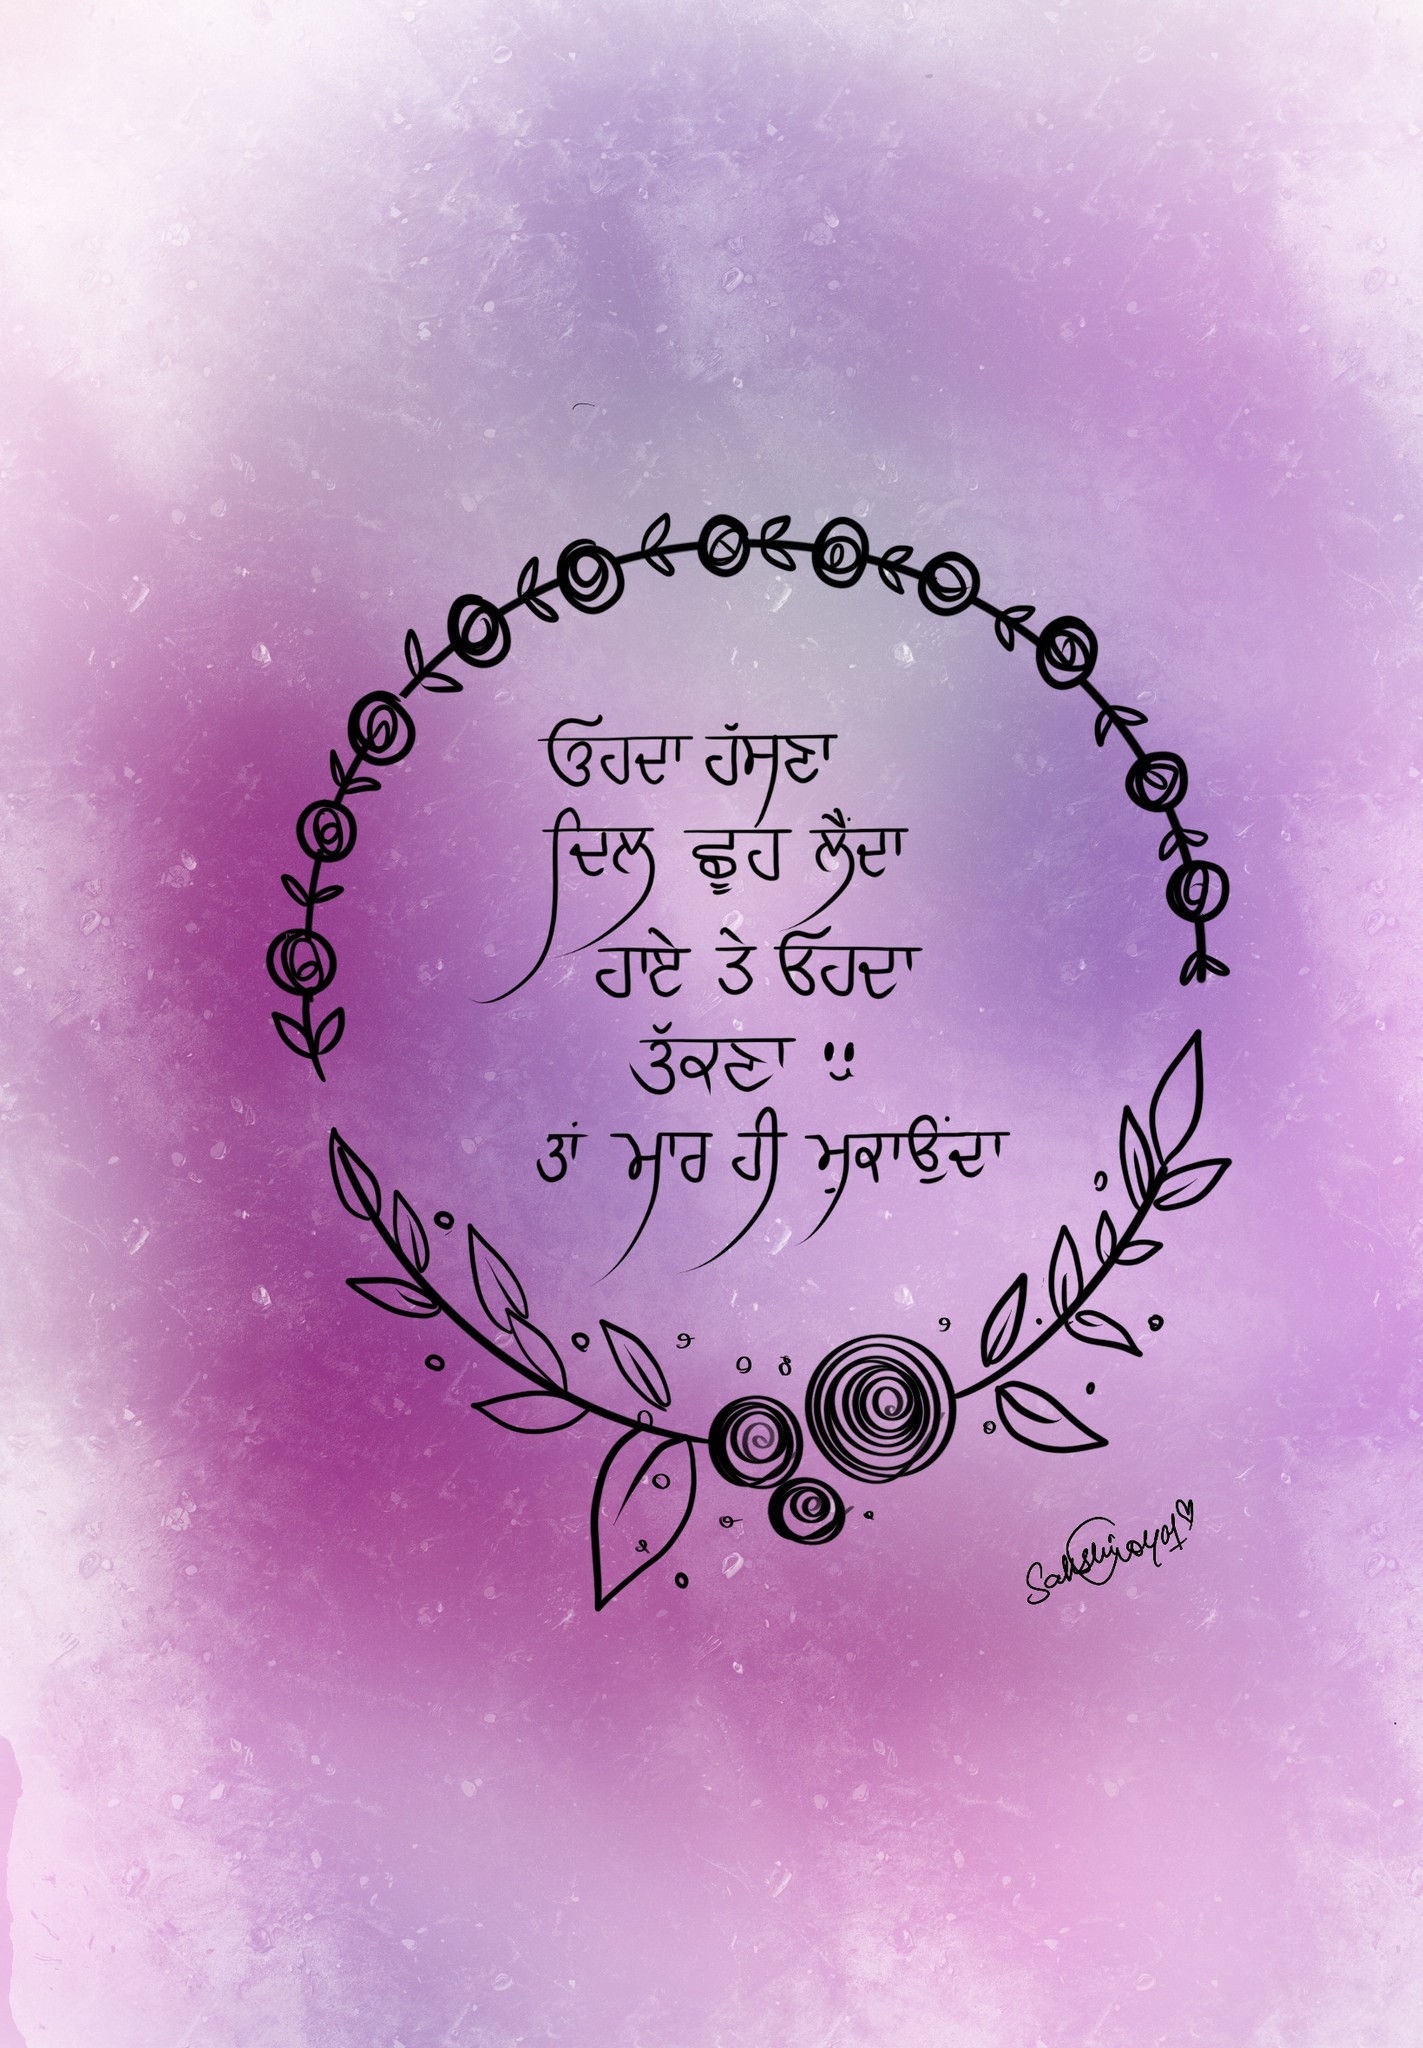 ਓਹਦਾ ਹੱਸਣਾ
ਦਿਲ ਛੂਹ ਲੈਂਦਾ
ਹਾਏ ਤੇ ਓਹਦਾ
ਤੱਕਣਾ
ਤਾਂ ਮਾਰ ਹੀ ਮੁਕਾਉਂਦਾ